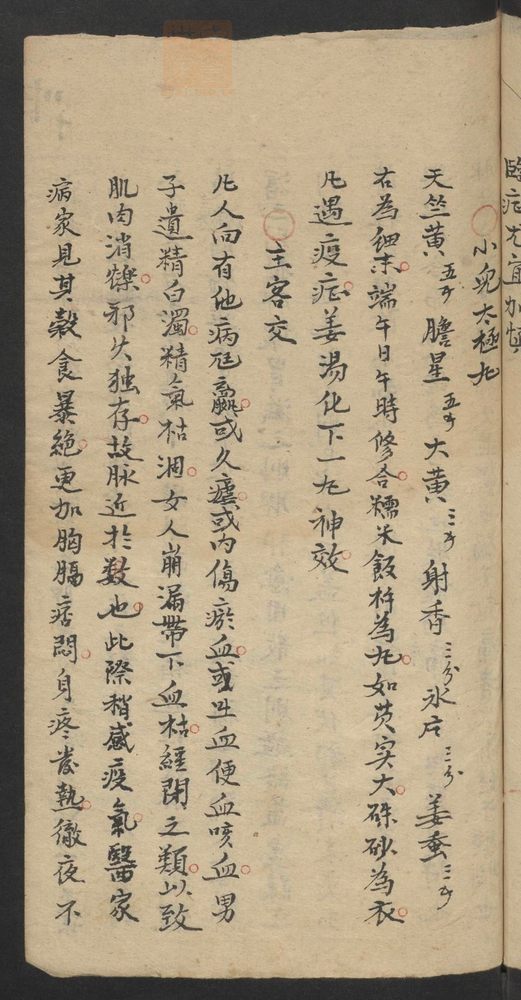 臨症尤宜加慎
小兒太極丸
天竺黄五錢 膽星五錢 大黄三錢 射香三分 氷片三分 姜蚕三錢
右為細末端午日午時修合糯米飯杵為丸如芡实大硃砂為衣
凡遇疫症姜湯化下一丸神效
主客交
凡人向有他病尪羸或久瘧或内傷瘀血或吐血便血咳血男
子遺精白濁精氣枯涸女人崩漏帶下血枯經閉之類以致
肌肉消爍邪火独存故脉近於数也此際稍感疫氣醫家
病家見其穀食暴絶更加胸膈痞悶身疼發热徹夜不